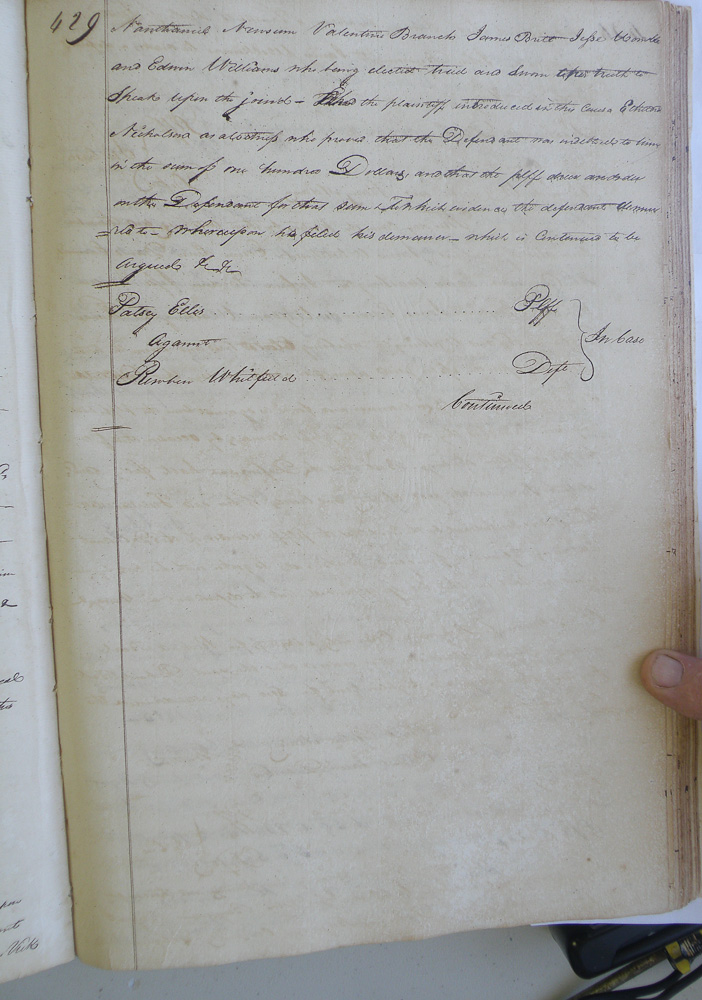 429
Nanthaniel Newsum Valentine Branch James Britt Jesse
and Edwin Williams who being elected tried and Sworn the truth to
Speak upon the joind – the plaintiff introduced in this Causa
Nicholson as a witness who proves that the Defendant was indebted to him
in the sum of one hundred Dollars, and that the plff drew an order
on the Defendant for that sum which evidence the defendant demur
red to – Whereupon he filed his demurer – which is Continued to be
argued &c &c
Patsey Ellis . . . . . . . . . . . . . . . . Plff
against
In Case
Reuben Whitfield . . . . . . . . . . . . Deft
Continued